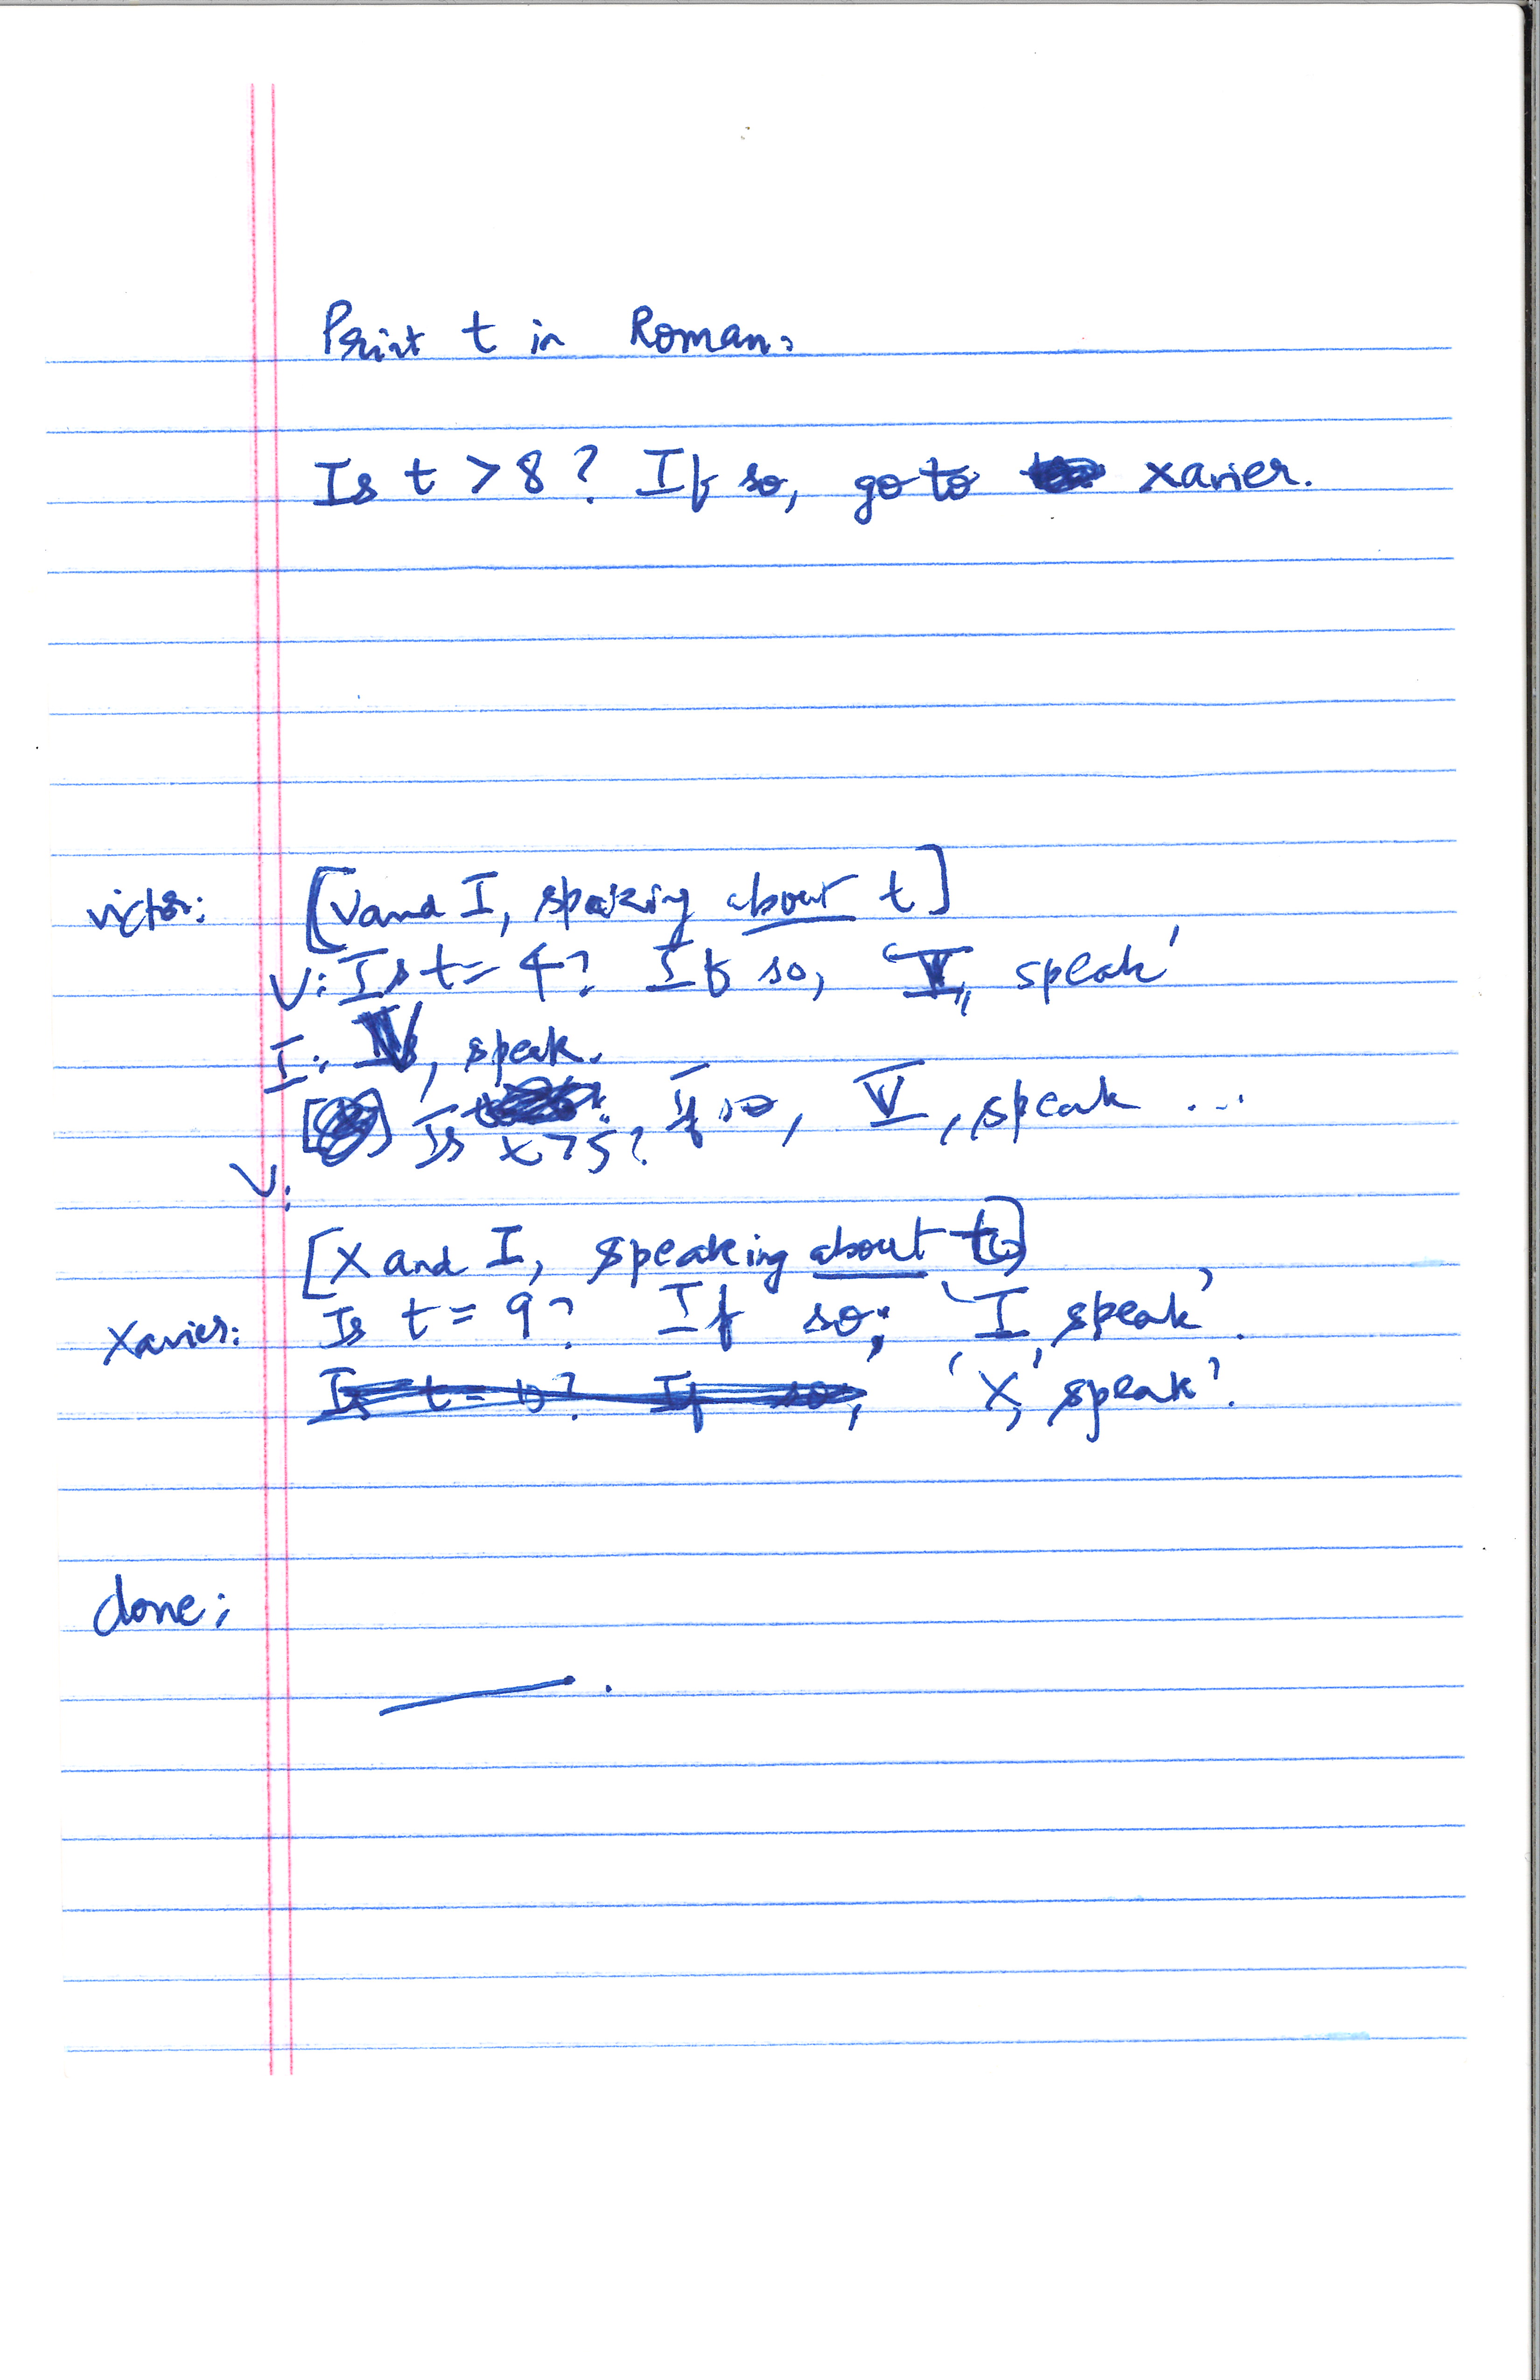 Print t in Roman.
Is t > 8? If so, go to xavier.
victor: [V and I, speaking about t]
V: Is t = 4? If so, 'I, speak'
I: V, speak.
V: [ ] Is t > 5? If so, V, speak ...
[X and I, speaking about t]
Xavier: Is t = 9? If so; 'I, speak'.
Is t = 10? If so, 'X, speak'.
done: